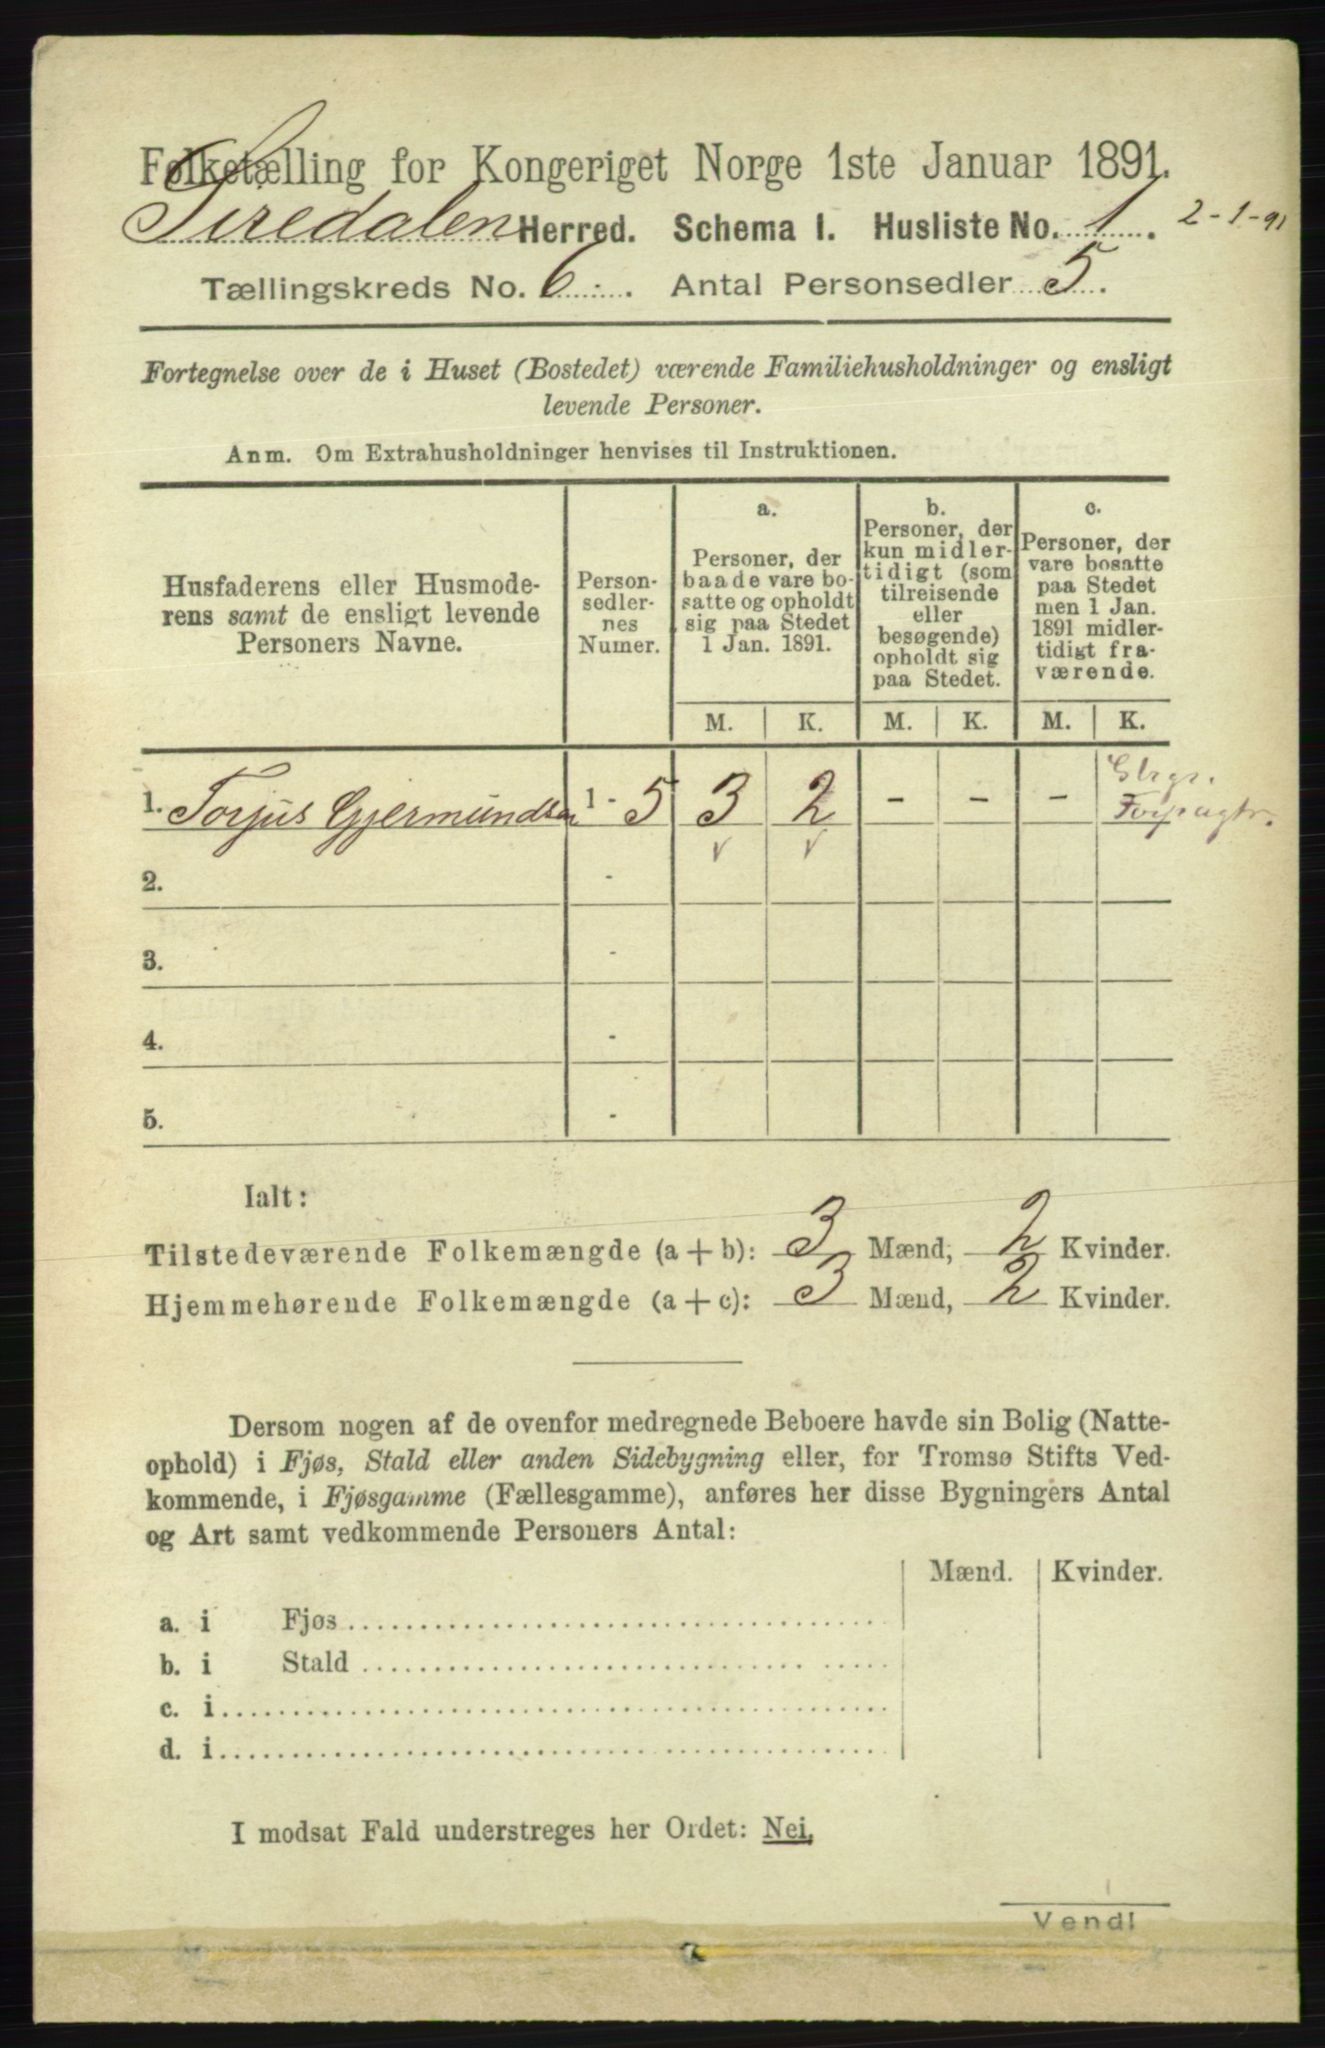 Folketælling for Kongeriget Norge 1ste Januar 1891.
Siredalen Herred. Schema I. Husliste No. 1. 2-1-91
Tællingskreds No. 6. Antal Personsedler 5.
Fortegnelse over de i Huset (Bostedet) værende Familiehusholdninger og ensligt
levende Personer.
Anm. Om Extrahusholdninger henvises til Instruktionen.
Husfaderens eller Husmode-
rens samt de ensligt levende
Personers Navne.
Person-
sedler-
nes
Numer.
a.
Personer, der
baade vare bo-
satte og opholdt
sig paa Stedet
1 Jan. 1891.
b.
Personer, der
kun midler-
tidigt (som
tilreisende
eller
besøgende)
opholdt sig
paa Stedet.
c.
Personer, der
vare bosatte
paa Stedet
men 1 Jan.
1891 midler-
tidigt fra-
værende.
M. K. M. K. M. K.
1. Torjus Gjermundsen 1 - 5 3 2 - - -
Forpagtr.
2. -
3. -
4. -
5. -
Ialt:
Tilstedeværende Folkemængde (a + b): 3 Mænd, 2 Kvinder.
Hjemmehørende Folkemængde (a + c): 3 Mænd, 2 Kvinder.
Dersom nogen af de ovenfor medregnede Beboere havde sin Bolig (Natte-
ophold) i Fjøs, Stald eller anden Sidebygning eller, for Tromsø Stifts Ved-
kommende, i Fjøsgamme (Fællesgamme), anføres her disse Bygningers Antal
og Art samt vedkommende Personers Antal:
Mænd. Kvinder.
a. i Fjøs
b. i Stald
c. i
d. i
I modsat Fald understreges her Ordet: Nei.
Vend!